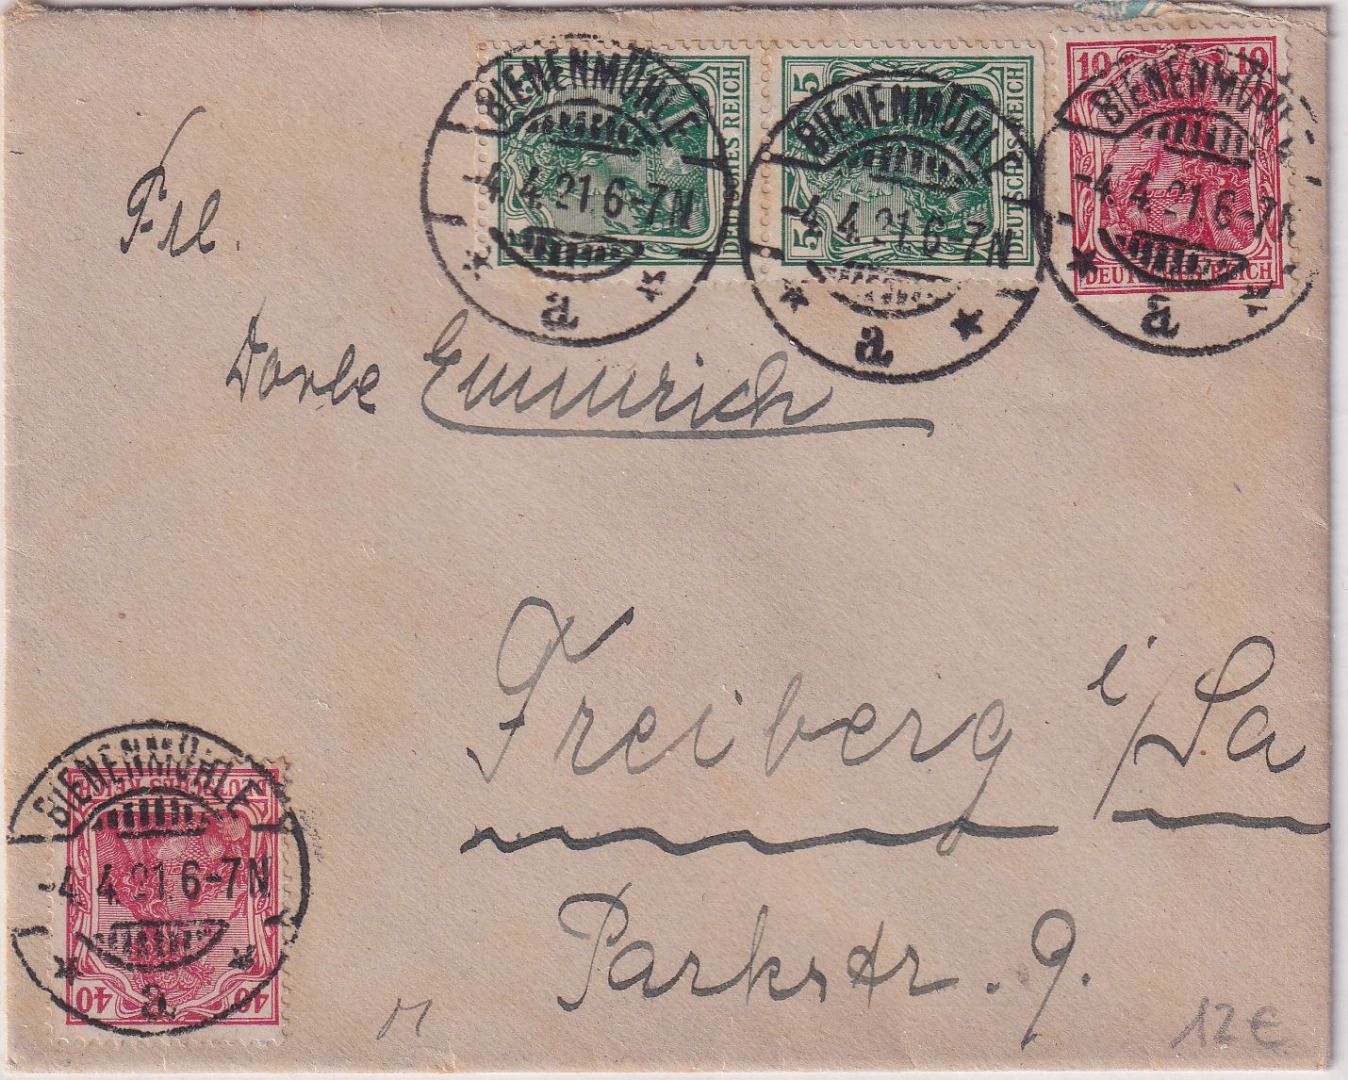 5 DEUTSCHES REICH
5 5 DEUTSCHES REICH
10 10 DEUTSCHES REICH
BIENENMÜHLE
-4.4.21.6-7N
* a *
BIENENMÜHLE
-4.4.21.6-7N
* a *
BIENENMÜHLE
-4.4.21.6-7N
* a *
Frl.
Dorle Emmrich
Freiberg i/Sa
Parkstr. 9.
BIENENMÜHLE
-4.4.21.6-7N
* a *
DEUTSCHES REICH
40 40
12€